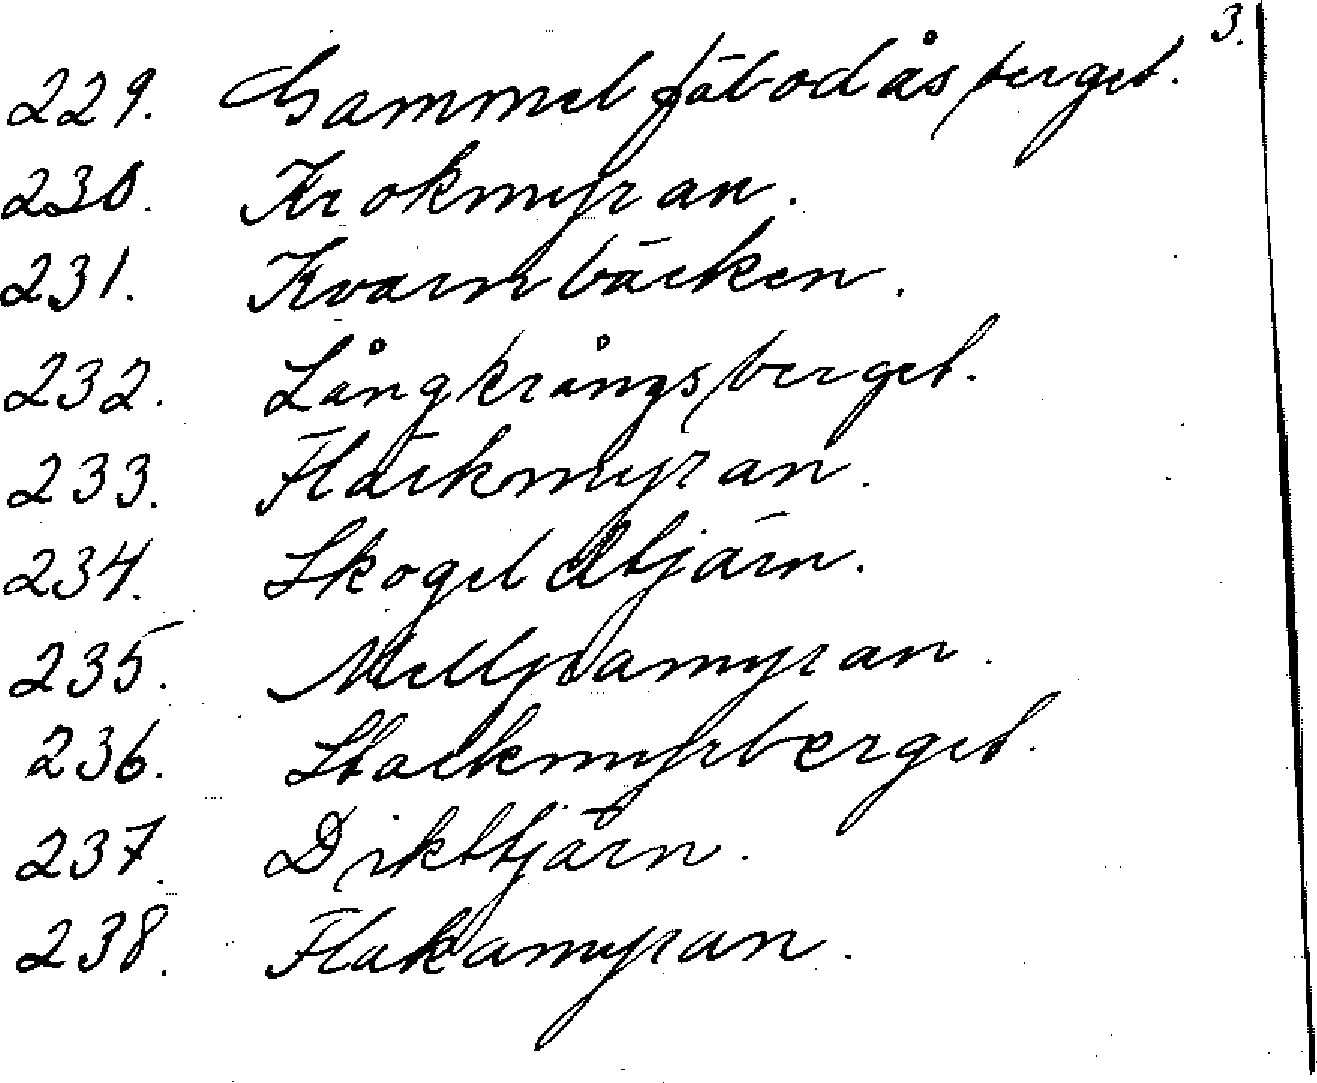 3.
229. Gammelfäbodåsberget.
230. Krokmyran.
231. Kvarnbäcken.
232. Långkrångsberget.
233. Fläckmyran.
234. Skogeldtjärn.
235. Mellramyran.
236. Stackmyrberget.
237. Diktjärn.
238. Flakamyran.